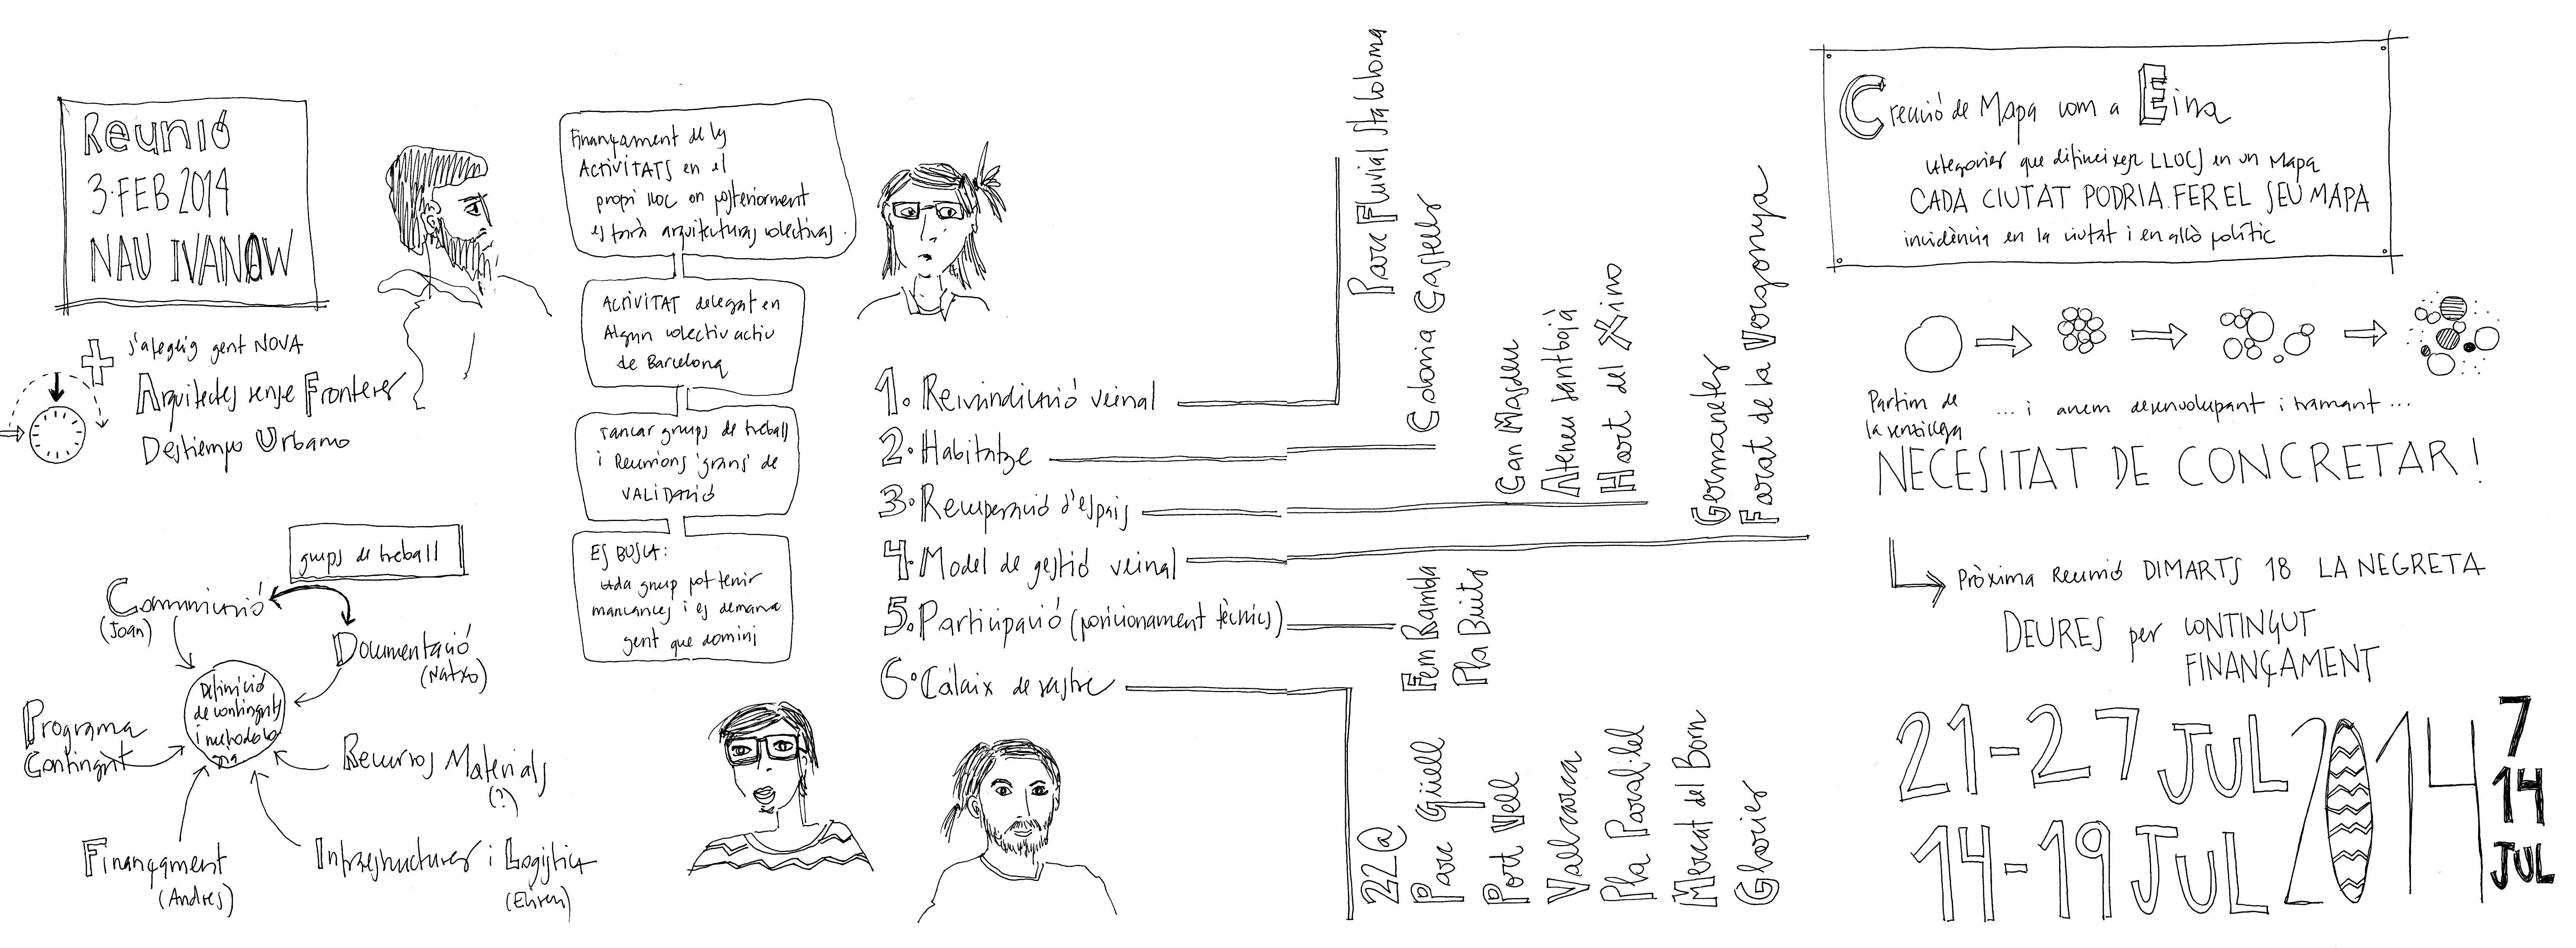 Reunió
3·FEB 2014
NAU IVANOW
s'afegeig gent NOVA
Arquitectes sense Fronteres
Destiempo Urbano
grups de treball
Comunicació
(Joan)
Documentació
(Natxo)
Definició
de continguts
i metodolo
gia
Programa
Contingut
Recursos Materials
(?)
Finançament
(Andres)
Infraestructures i Logística
(Efren)
Finançament de les
ACTIVITATS en el
propi lloc on posteriorment
es farà arquitecturas colectivas.
ACTIVITAT delegat en
Algun colectiu actiu
de Barcelona
Tancar grups de treball
i Reunions 'grans' de
VALIDACIÓ
ES BUSCA:
cada grup pot tenir
mancances i es demana
gent que domini
1. Reivindicació veïnal
2. Habitatge
3. Recuperació d'espais
4. Model de gestió veïnal
5. Participació (posicionament tècnics)
6. Calaix de sastre
Parc Fluvial Sta Coloma
Colonia Castells
Can Masdeu
Ateneu Santboià
Hort del Xino
Germanetes
Forat de la Vergonya
Fem Rambla
Pla Buits
22@
Parc Güell
Port Vell
Vallcarca
Pla Paral·lel
Mercat del Born
Glories
Creació de Mapa com a Eina
categories que difineixen LLOCS en un Mapa
CADA CIUTAT PODRIA FER EL SEU MAPA
incidència en la ciutat i en allò polític
Partim de
la senzillesa
... i anem desenvolupant i tramant ...
NECESITAT DE CONCRETAR!
Pròxima Reunió DIMARTS 18 LA NEGRETA
DEURES per CONTINGUT
FINANÇAMENT
21-27 JUL
14-19 JUL
2014
7
14
JUL